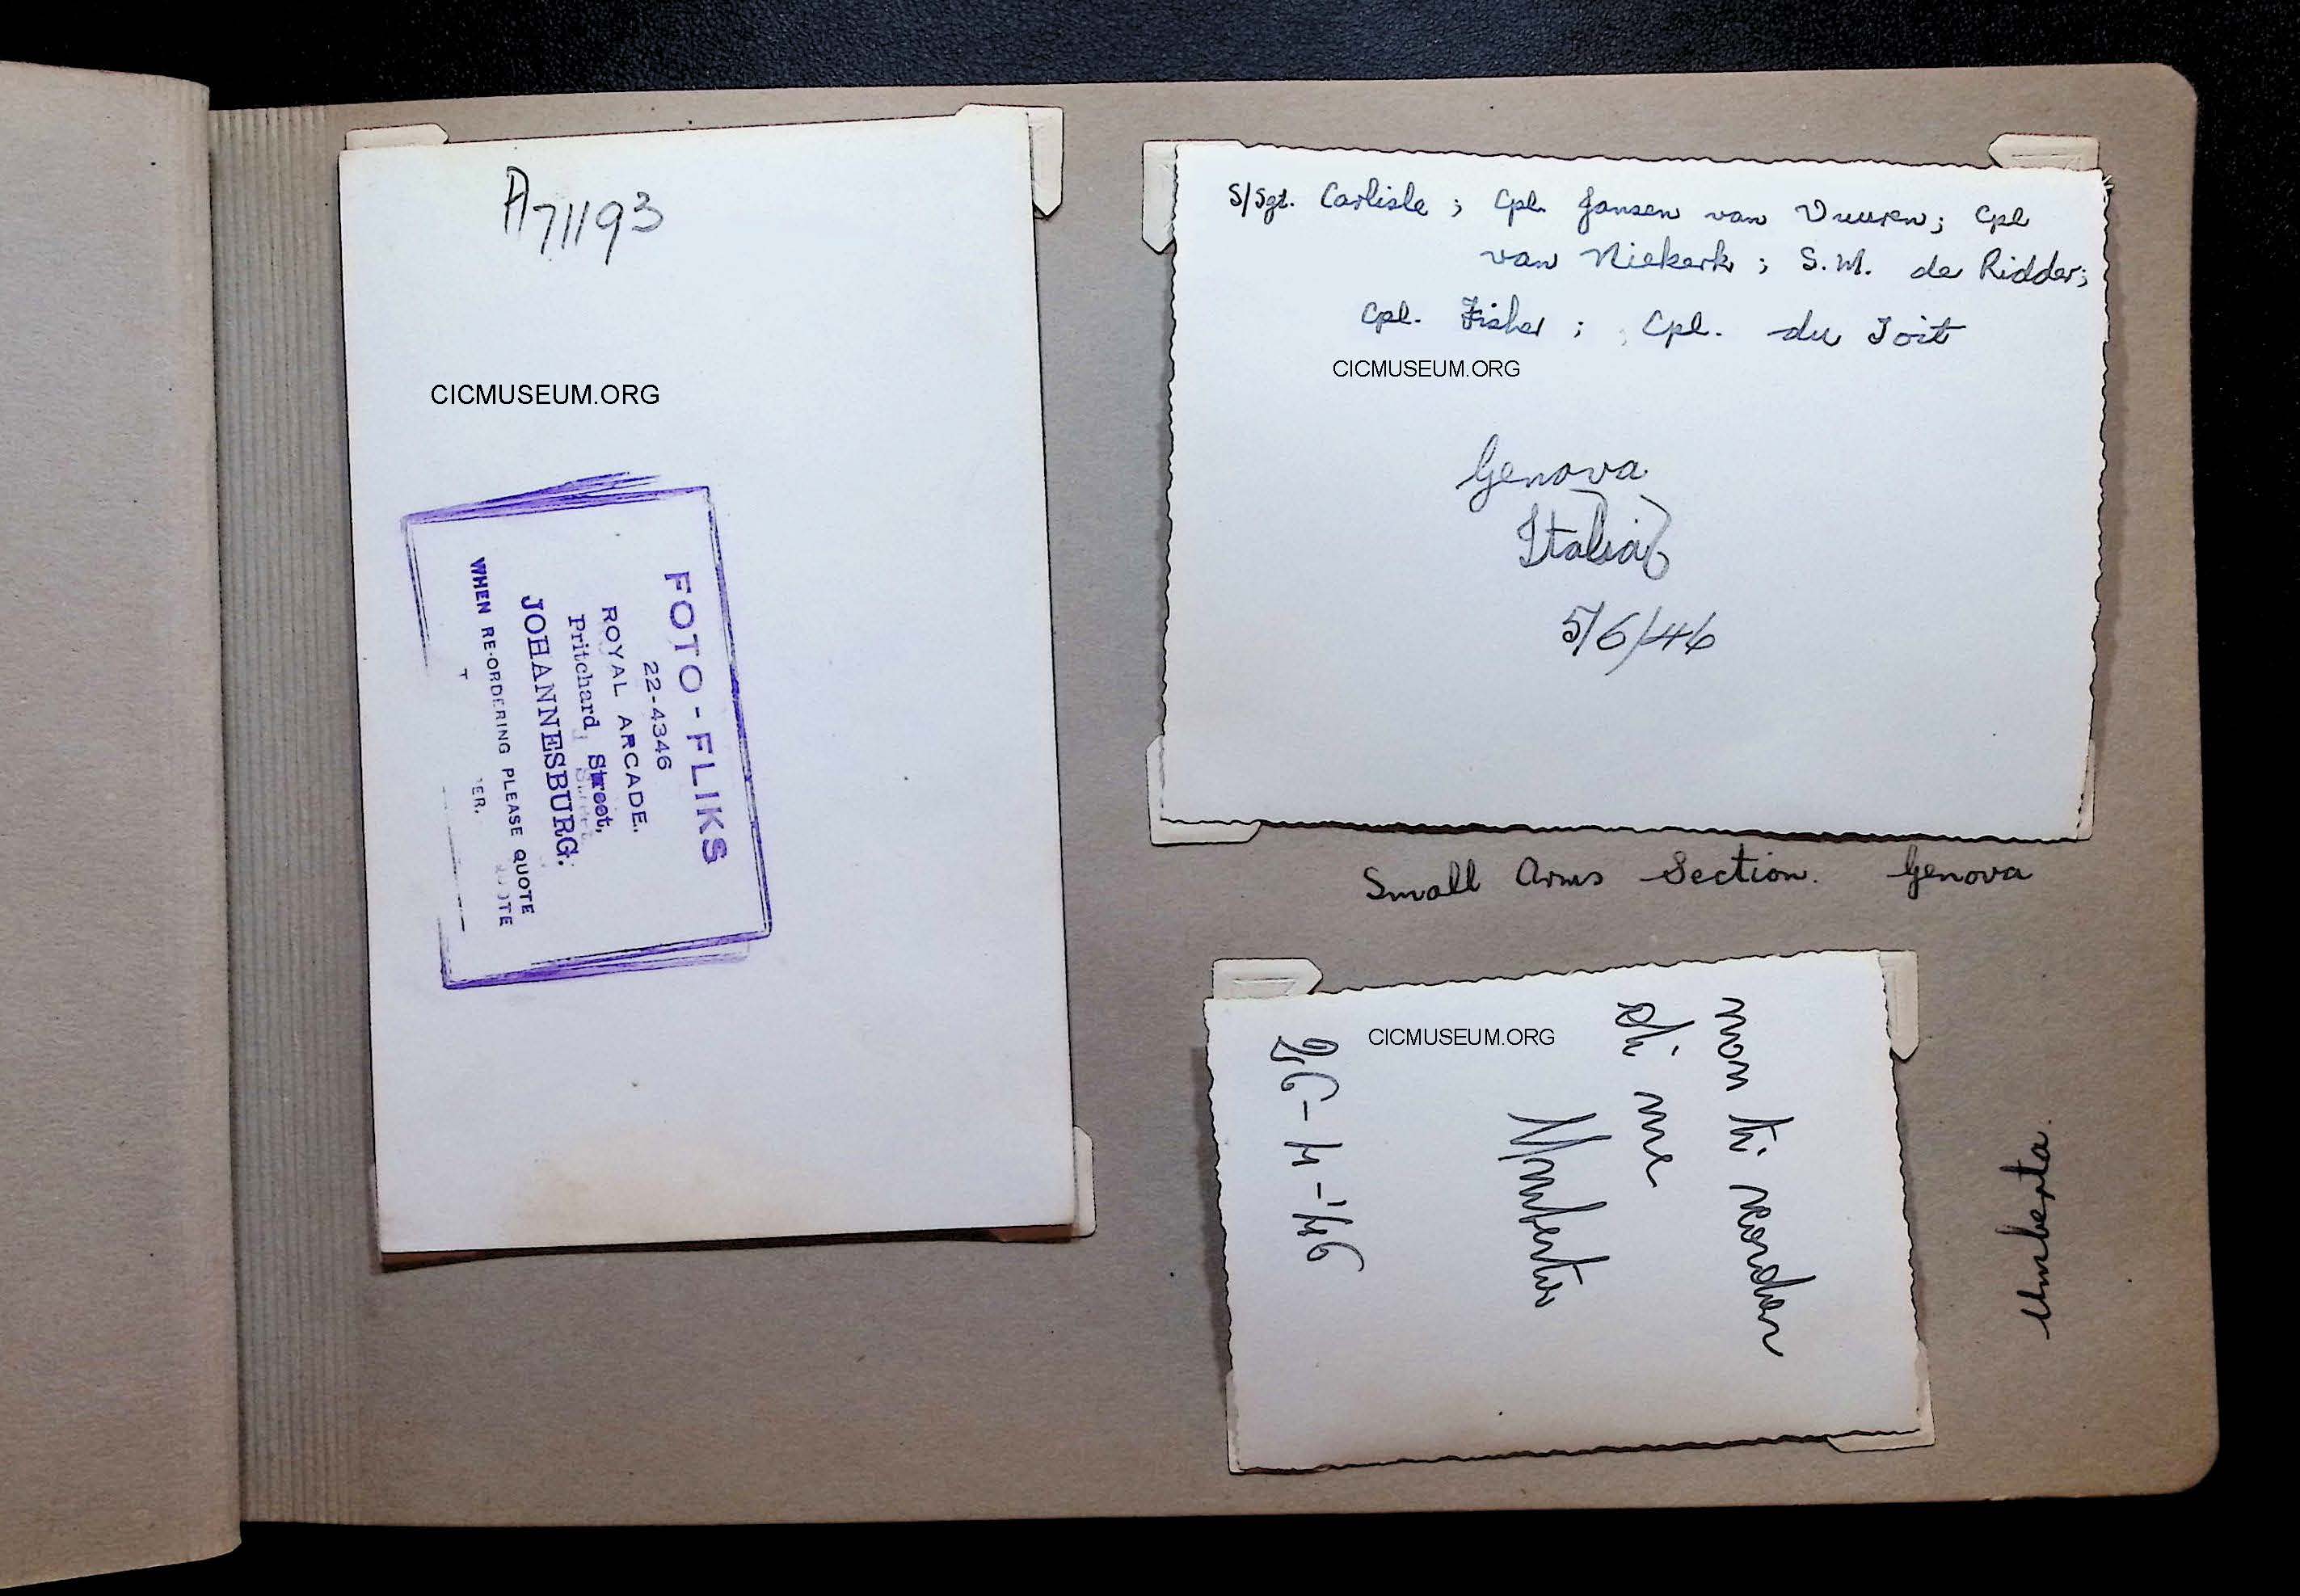 A71193
CICMUSEUM.ORG
FOTO-FLIKS
22-4346
ROYAL ARCADE.
Pritchard Street,
JOHANNESBURG.
WHEN RE-ORDERING PLEASE QUOTE
S/Sgt. Carlisle ; Cpl. Jansen van Vuuren; Cpl
van Niekerk ; S.M. de Ridder;
Cpl. Fisher ; Cpl. du Toit
CICMUSEUM.ORG
Genova
Italia
5/6/46
Small Arms Section. Genova
CICMUSEUM.ORG
non ti scordar
di me
Umberta
26-4-46
Umberta.